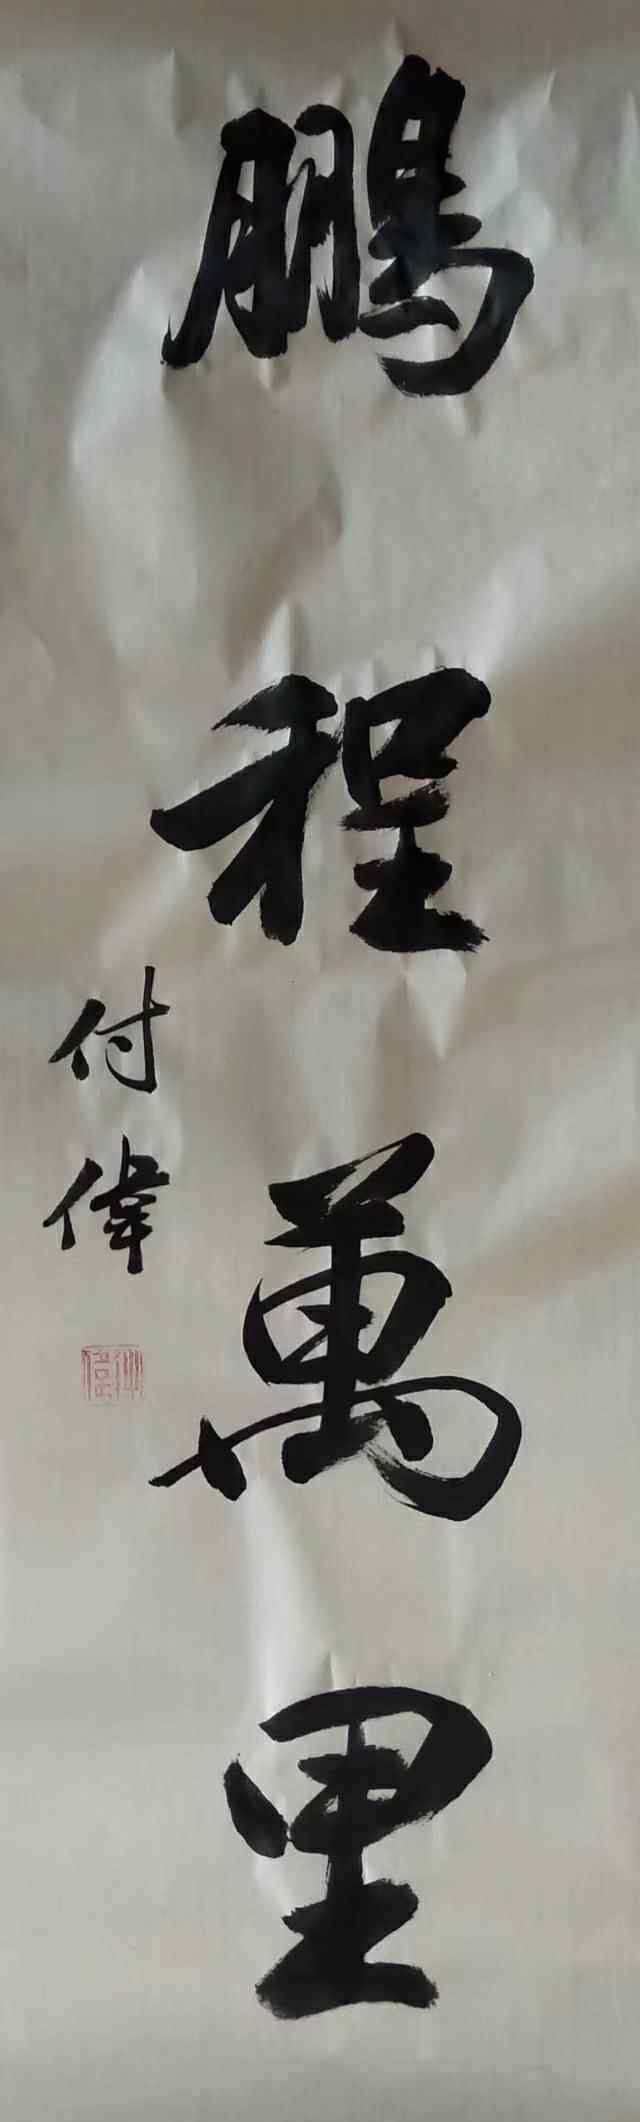 鵬程萬里
付偉